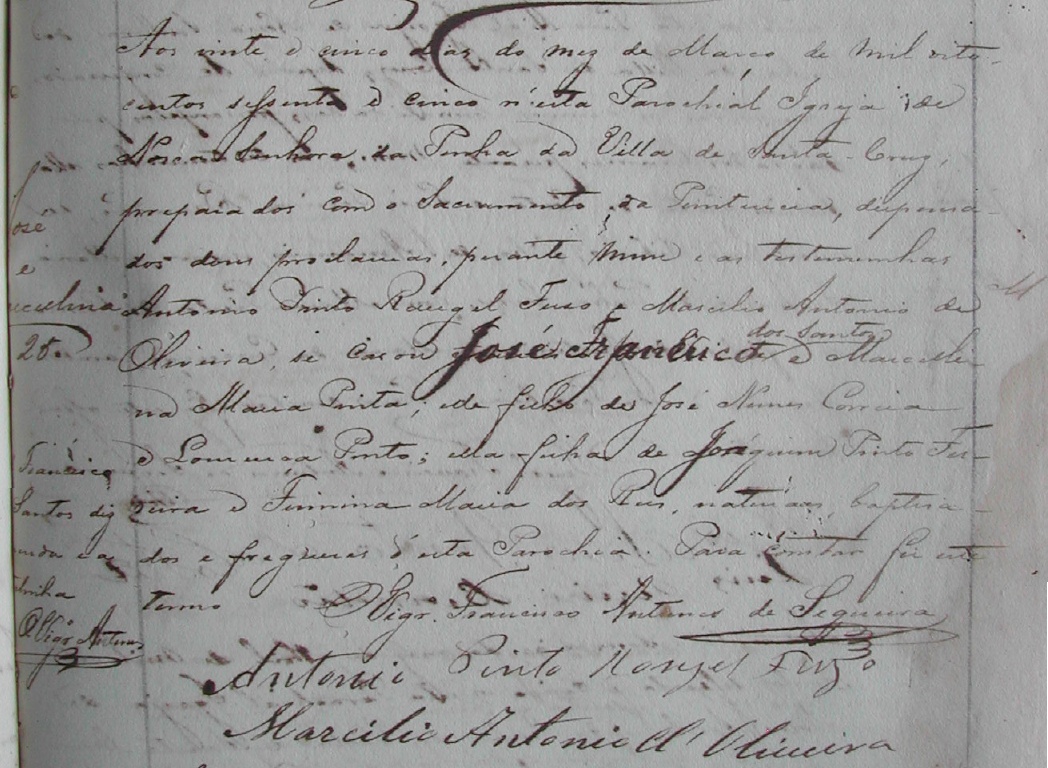 Aos vinte e cinco dias do mez de Março de mil oito-
centos sessenta e cinco n'esta Parochial Igreja de
Nossa Senhora da Penha da Villa de Santa Cruz,
preparados com o Sacramento da Penitencia, dispensa-
dos dous proclamas, perante mim e as testemunhas
Antonio Pinto Rangel Fuzo e Marcilio Antonio de
Oliveira, se casou José Francisco dos Santos e Marceli-
na Maria Pinta; elle filho de José Nunes Correia
e Lourença Pinto; ella filha de Joaquim Pinto Fer-
reira e Firmina Maria dos Reis, naturaes, baptisa-
dos e freguezes d'esta Parochia. Para constar fiz este
termo O Vigrº Francisco Antunes de Siqueira
Antonio Pinto Rangel Fuzo
Marcilio Antonio d'Oliveira
osé
e
28
Francisco
Santos
O Vigrº Antunes